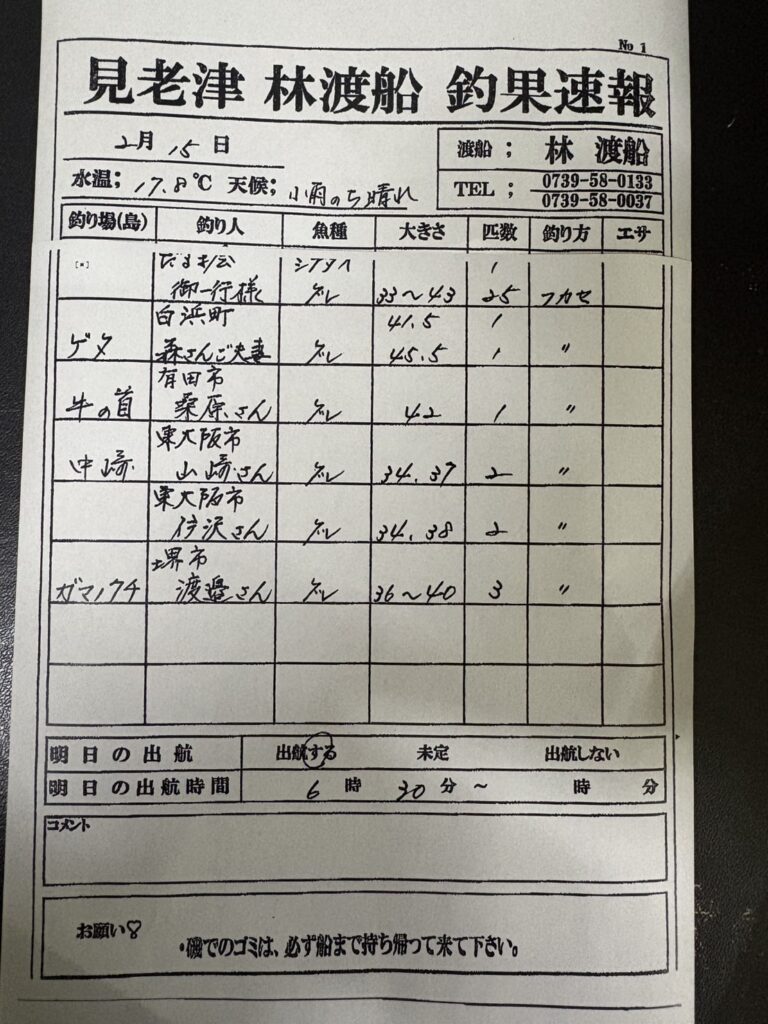 No 1
見老津 林渡船 釣果速報
2月 15 日
渡船 ; 林 渡船
水温; 17.8℃ 天候; 小雨のち晴れ
TEL ; 0739-58-0133
0739-58-0037
釣り場(島) 釣り人 魚種 大きさ 匹数 釣り方 エサ
1
御一行様 グレ 33〜43 25 フカセ
白浜町 41.5 1
ゲタ 森さんご夫妻 グレ 45.5 1 〃
有田市
牛の首 桑原さん グレ 42 1 〃
東大阪市
中崎 山崎さん グレ 34.37 2 〃
東大阪市
伊沢さん グレ 34.38 2 〃
堺市
ガマノクチ 渡邉さん グレ 36〜40 3 〃
明日の出航 出航する 未定 出航しない
明日の出航時間 6 時 30 分 〜 時 分
コメント
お願い♡
・磯でのゴミは、必ず船まで持ち帰って来て下さい。